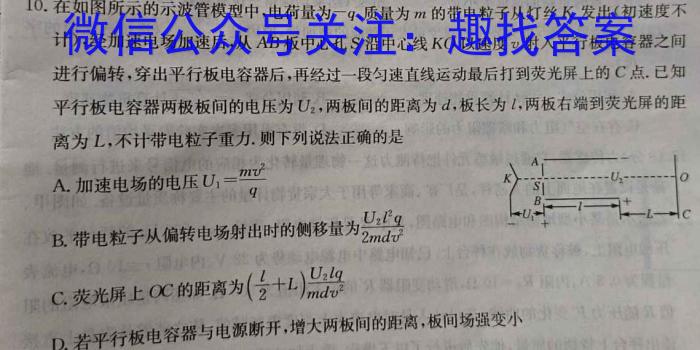 10. 在如图所示的示波管模型中,电荷量为 质量为 m 的带电粒子从灯丝 K 发出(初速度不
微信公众号关注：趣找答案
计),经加速电场加速后,从 AB 板中心孔 S 沿中心线 KO 以速度 v 射入平行板电容器之间
进行偏转,穿出平行板电容器后,再经过一段匀速直线运动最后打到荧光屏上的 C 点. 已知
平行板电容器两极板间的电压为 U₂,两板间的距离为 d,板长为 l,两板右端到荧光屏的距
离为 L,不计带电粒子重力. 则下列说法正确的是
A. 加速电场的电压 U₁=mv²/q
B. 带电粒子从偏转电场射出时的侧移量为 U₂l²q/2mdv²
C. 荧光屏上 OC 的距离为(l/2+L)U₂lq/mdv²
D. 若平行板电容器与电源断开,增大两板间的距离,板间场强变小
A
K S U₂ O
B +
U₁ + l L C